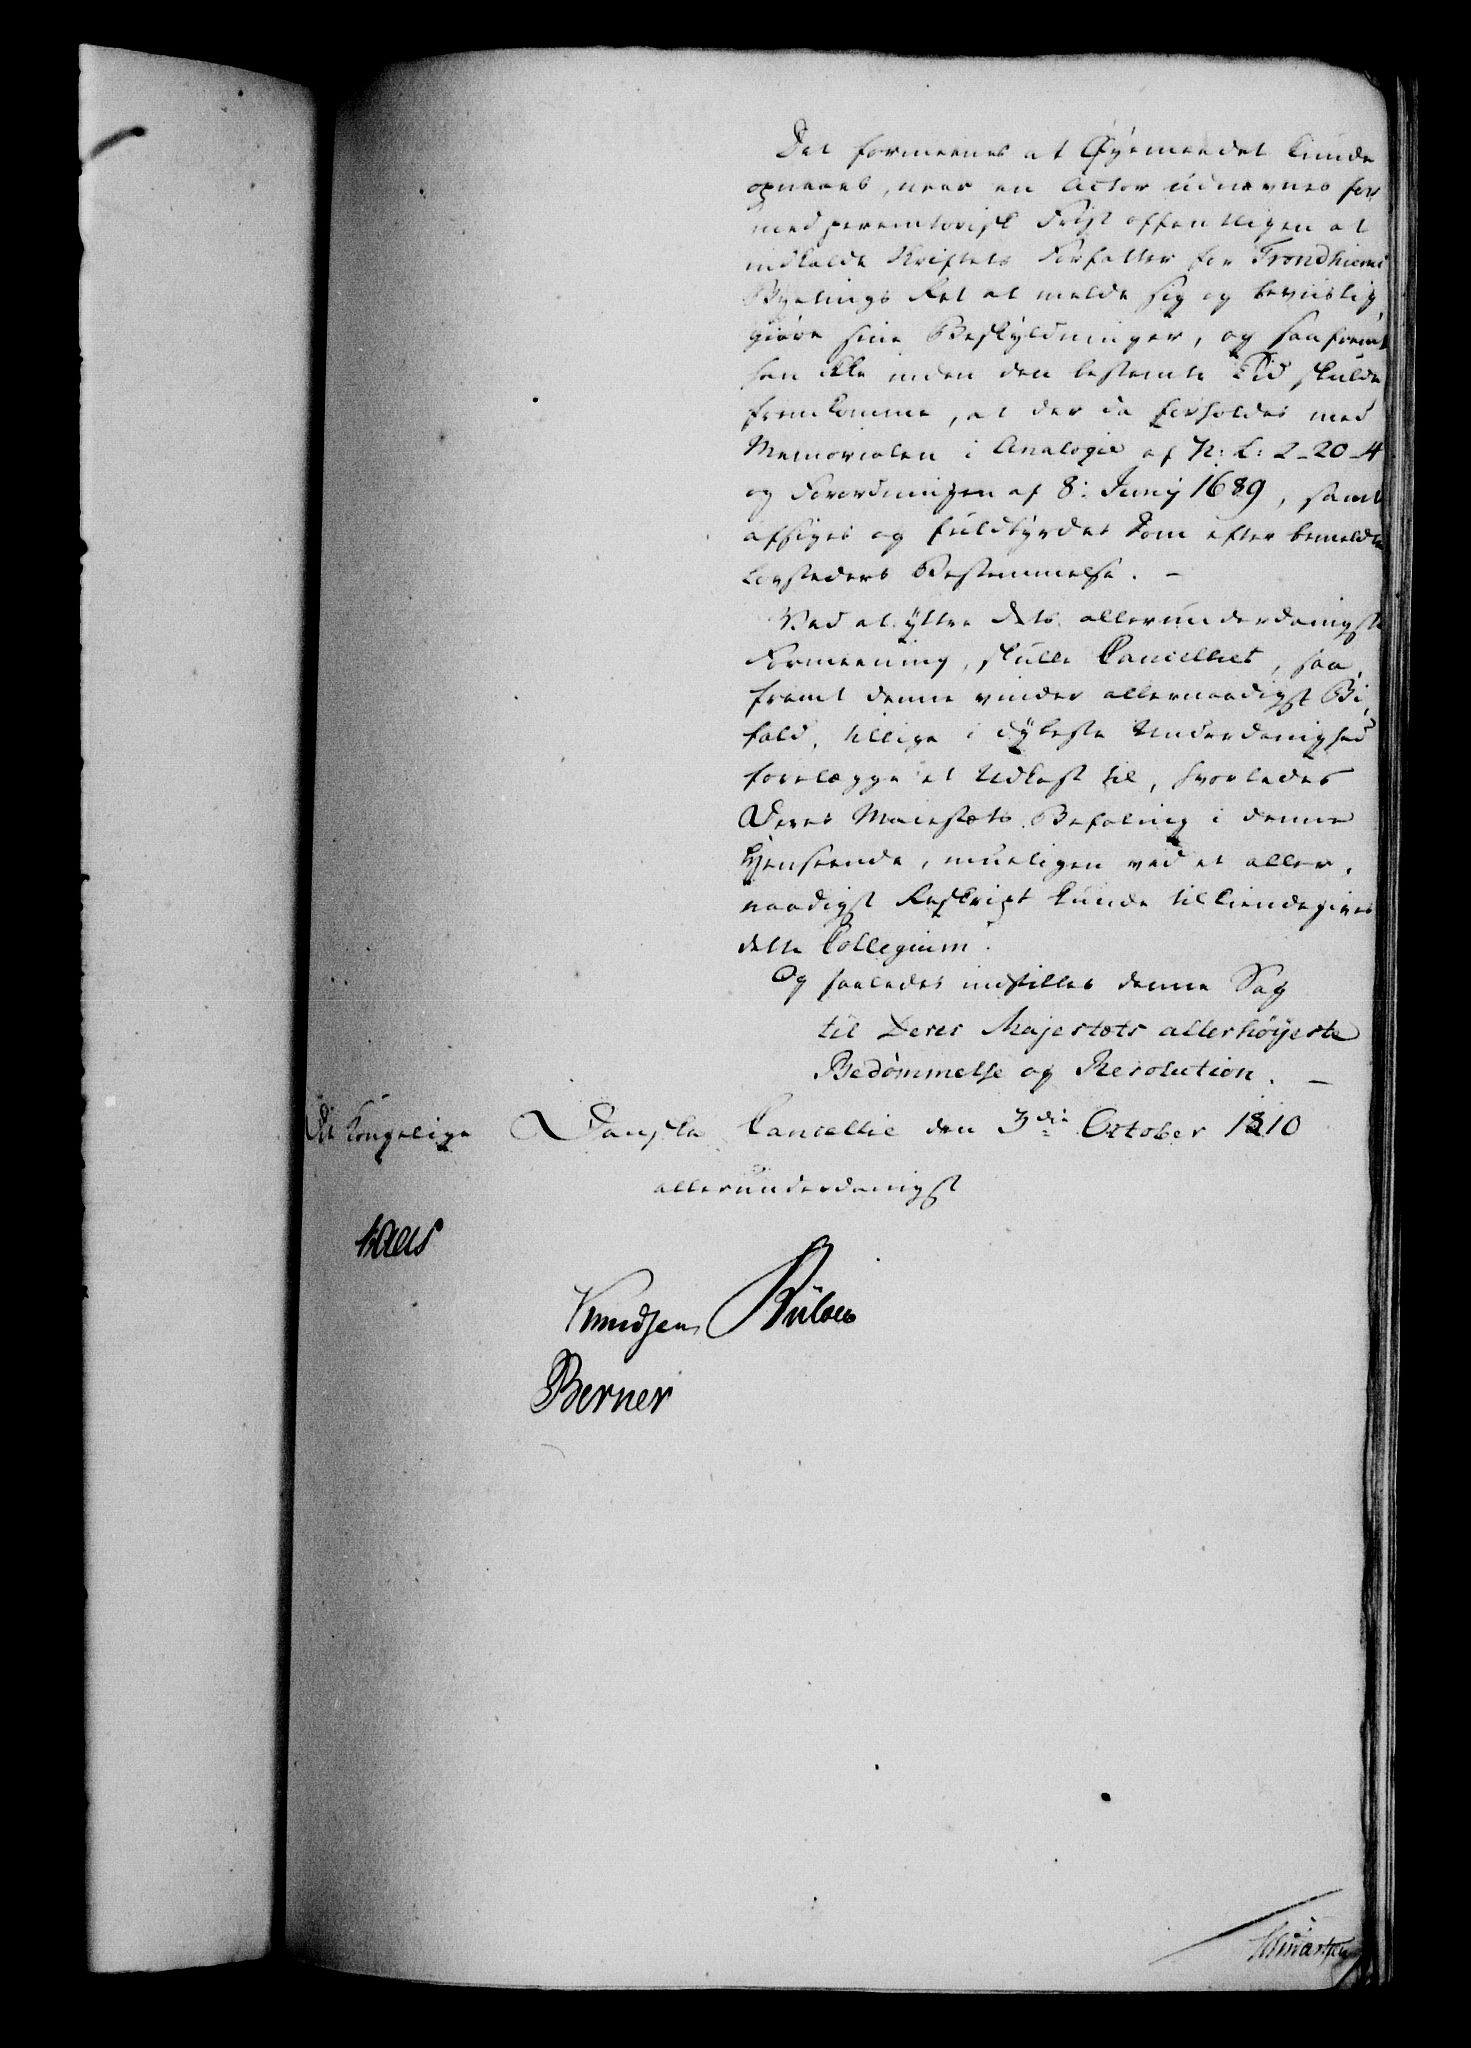 Det formeenes at Øyemeedet kunde
opnaaes, naar en Actor udnævnes for
med peremtorisk Frist offentligen at
indkalde Skriftets Forfatter for Trondhiems
Byetings Ret at melde sig og beviislig
giøre sine Beskyldninger, og saafremt
han ikke inden den bestemte Tid skulde
fremkomme, at der da forholdes med
Memorialen i Analogie af N: L: 2-20-4
og Forordningen af 8: Junij 1689, samt
afsiges og fuldbyrdes Dom efter bemeldte
Lovsteders Bestemmelse. –
Ved at yttre dets allerunderdanigste
Formeening, skulle Cancelliet, saa,
fremt denne vinder allernaadigst Bi,
fald, tillige i dybeste Underdanighed
forelægge et Udkast til, hvorledes
Deres Majestæts Befaling i denne
Henseende, mueligen ved et aller,
naadigst Reskript kunde tilkiendegives
dette Collegium.
Og saaledes indstilles denne Sag
til Deres Majestæts allerhøyeste
Bedømmelse og Resolution. –
Det Kongelige Danske Cancellie den 3die October 1810
allerunderdanigst
Kaas
Knudsen Bülow
Berner